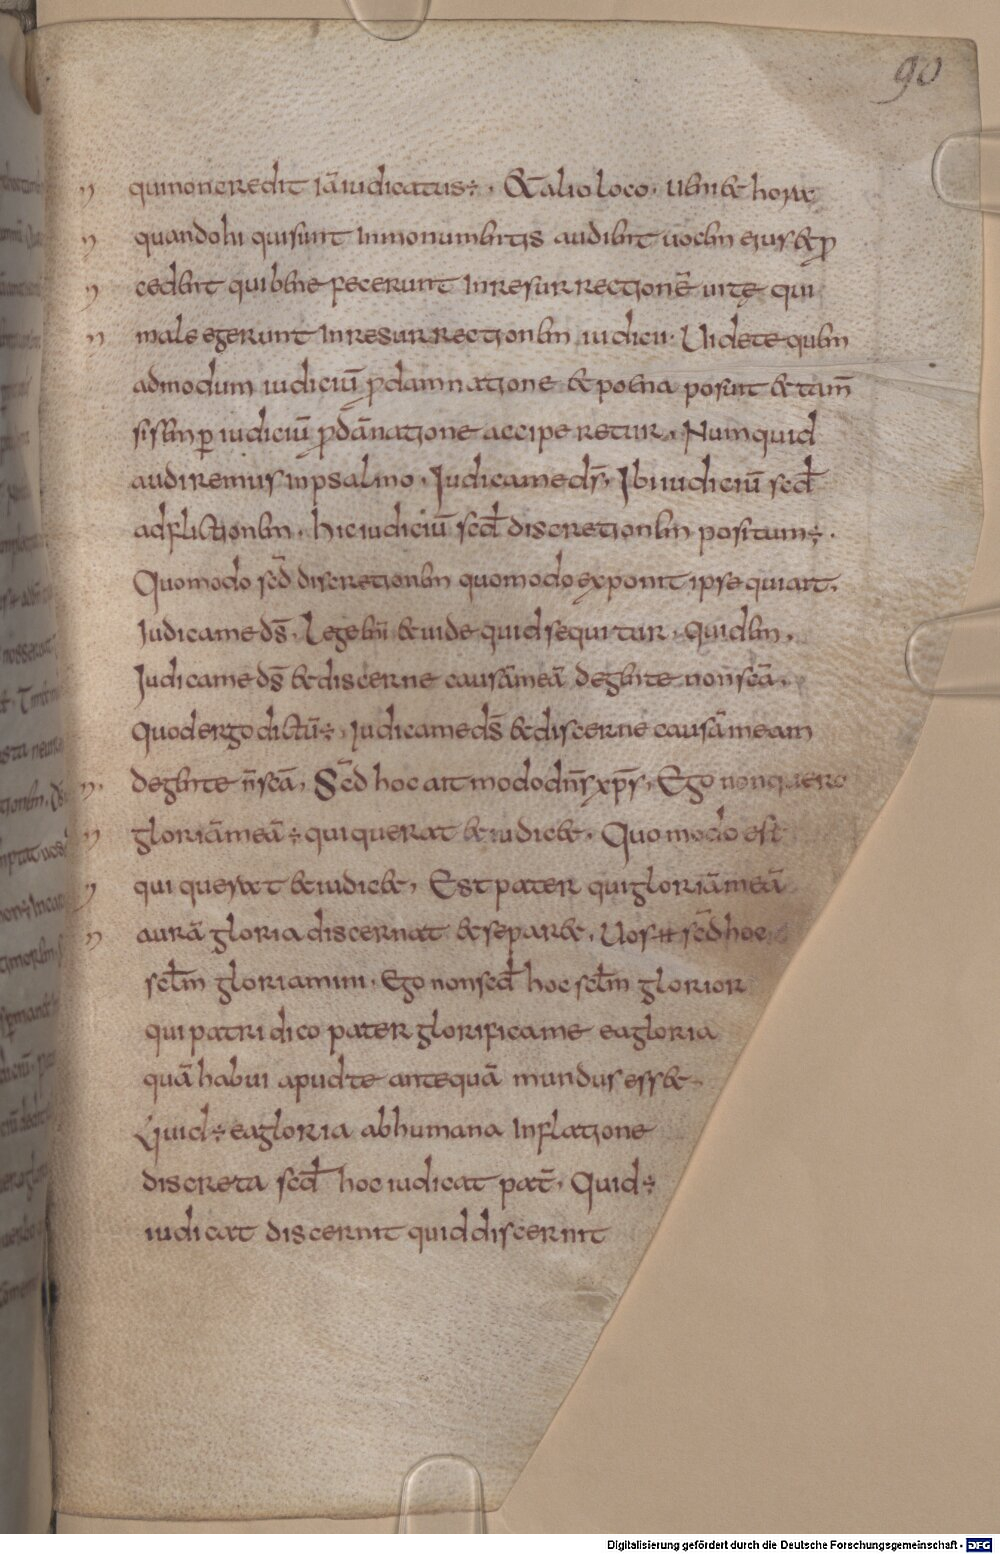 90
qui non credit iā iudicatus ÷. & alio loco. ueni& hora
quando hi qui sunt in monumentis audient uocem eius & ꝓ
cedent qui bene fecerunt in resurrectionē uitę qui
male egerunt in resurrectionem iudicii. Uidete quem
admodum iudiciū ꝓ damnatione & poena posuit & tam̄
si semꝑ iudiciū ꝓ dānatione acciperetur. Numquid
audiremus in psalmo. Iudica me d̄s. Ibi iudiciū secd̄
adflictionem. hic iudiciū secd̄ discretionem positum ÷.
Quomodo sec̄d discretionem quomodo exponit ipse qui ait.
Iudica me d̄s. Lege eni & uide quid sequitur. quid em.
Iudica me d̄s & discerne causā meā de gente non sc̄ā.
Quod ergo dictū ÷. iudica me d̄s & discerne causā meam
de gente n̄ sc̄ā. Sec̄d hoc ait modo dn̄s xp̄s. Ego non quero
gloriā meā ÷ qui querat & iudic&. Quomodo est
qui querat & iudic&. Est pater qui gloriā meā
a urā gloria discernat & separ&. Uos sec̄d hoc
sclm̄ gloriamini. Ego non secd̄ hoc sclm̄ glorior
qui patri dico pater glorifica me ea gloria
quā habui apud te antequā mundus ess&
Quid ÷ ea gloria ab humana inflatione
discreta secd̄ hoc iudicat pat̄. Quid ÷
iudicat discernit quid discernit
Digitalisierung gefördert durch die Deutsche Forschungsgemeinschaft - DFG